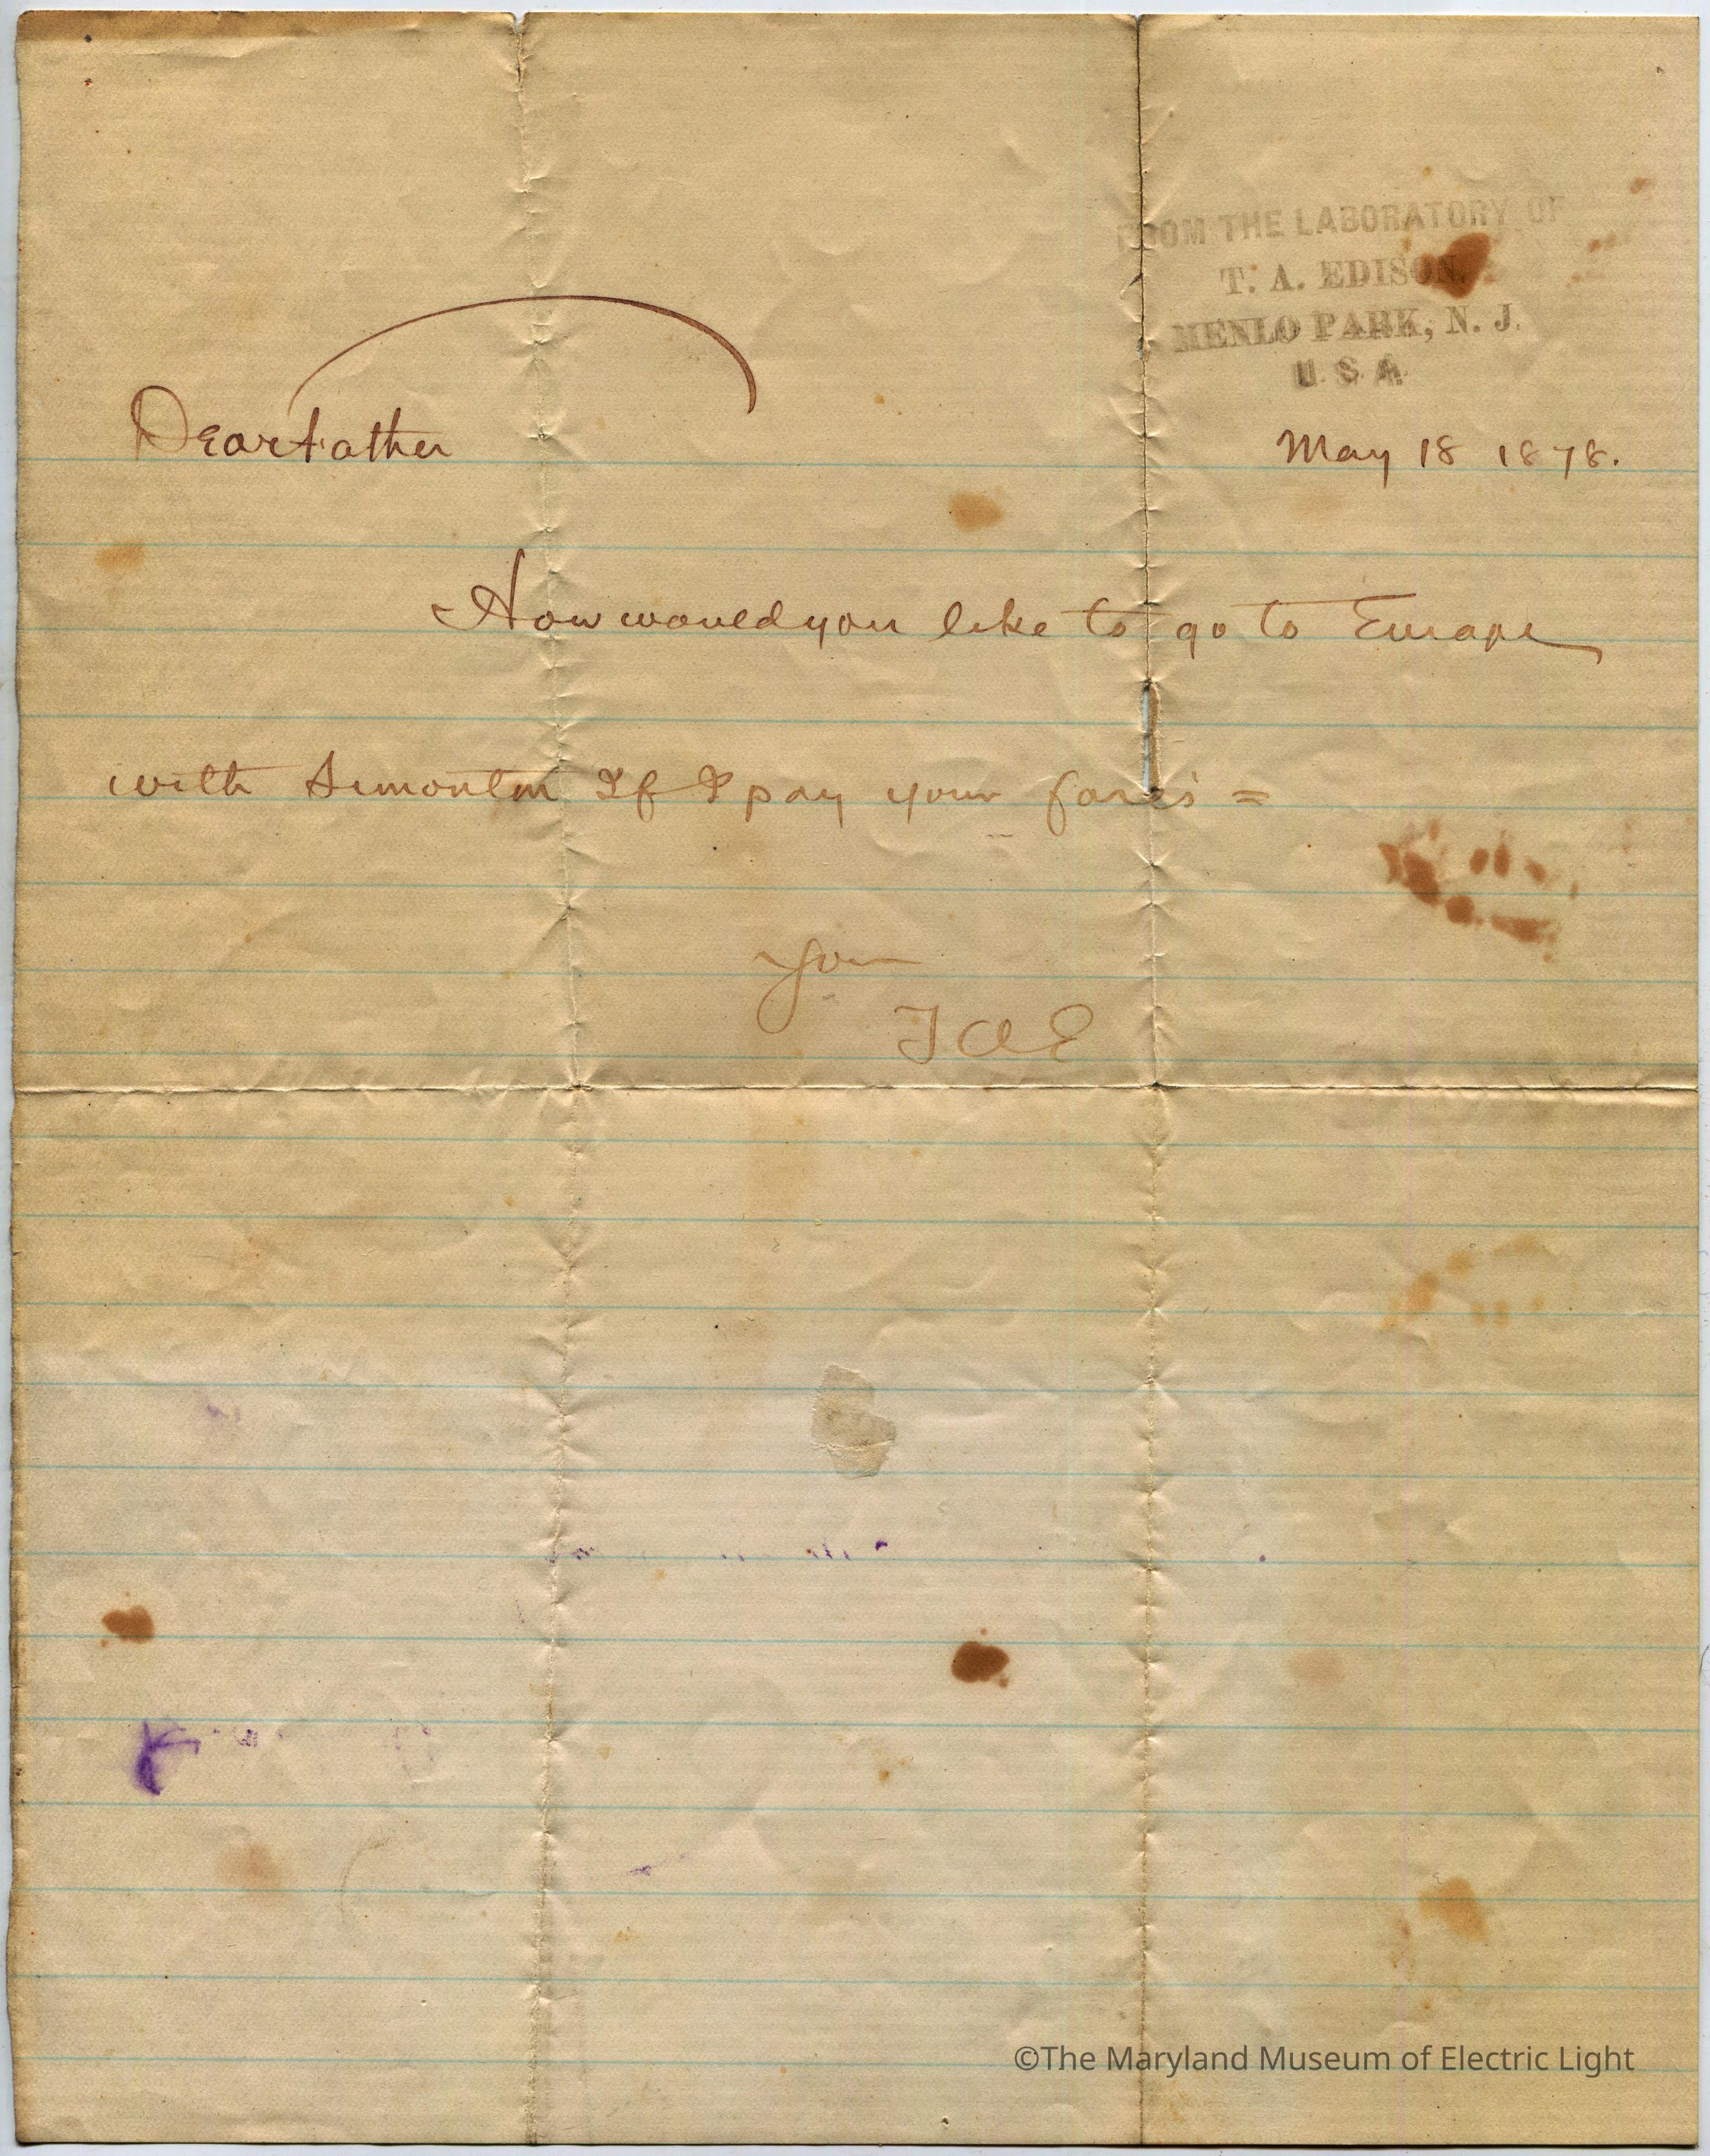 FROM THE LABORATORY OF
T. A. EDISON,
MENLO PARK, N. J.
U. S. A.
Dear Father
May 18 1878.
How would you like to go to Europe
with Simonton If I pay your fares =
Your
TAE
©The Maryland Museum of Electric Light